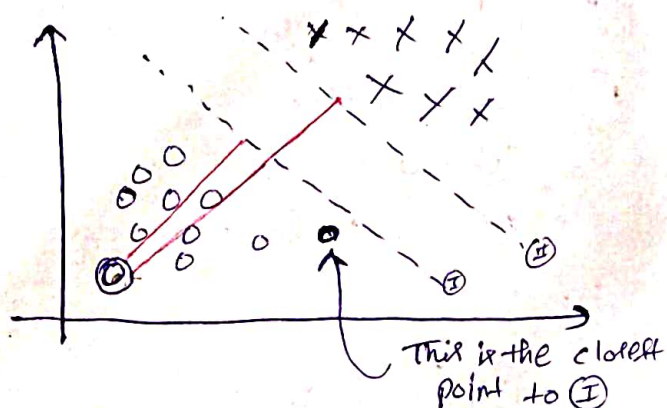 II
I
This is the closest
point to I